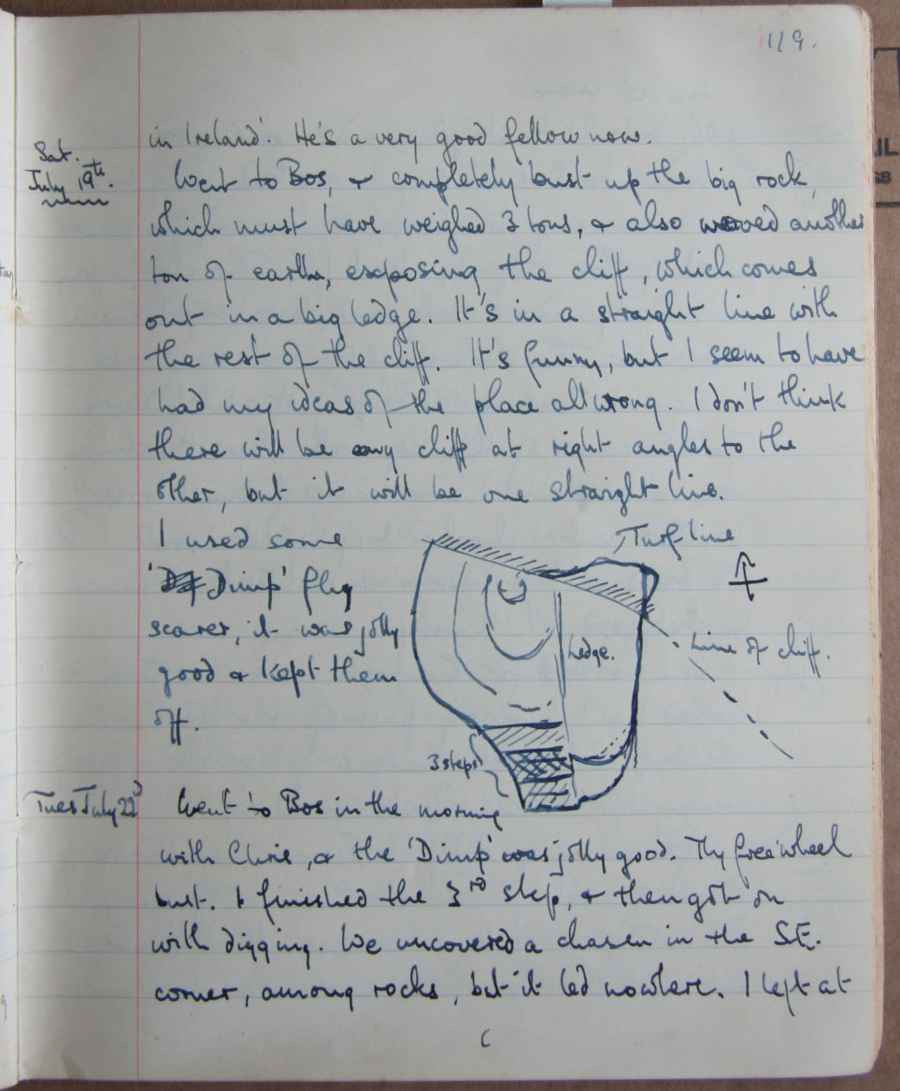 119.
in Ireland'. He's a very good fellow now.
Sat.
July 19th.
Went to Bos, & completely bust up the big rock,
which must have weighed 3 tons, & also moved another
ton of earth, exposing the cliff, which comes
out in a big ledge. It's in a straight line with
the rest of the cliff. It's funny, but I seem to have
had my ideas of the place all wrong. I don't think
there will be any cliff at right angles to the
other, but it will be one straight line.
I used some
'Dimp' fly
scarer, it was jolly
good & kept them
off.
Turf line
Ledge.
Line of cliff.
3 steps
Tues July 22d
Went to Bos in the morning
with Chris, & the 'Dimp' was jolly good. My free wheel
bust. I finished the 3rd step, & then got on
with digging. We uncovered a chasm in the S.E.
corner, among rocks, but it led nowhere. I left at